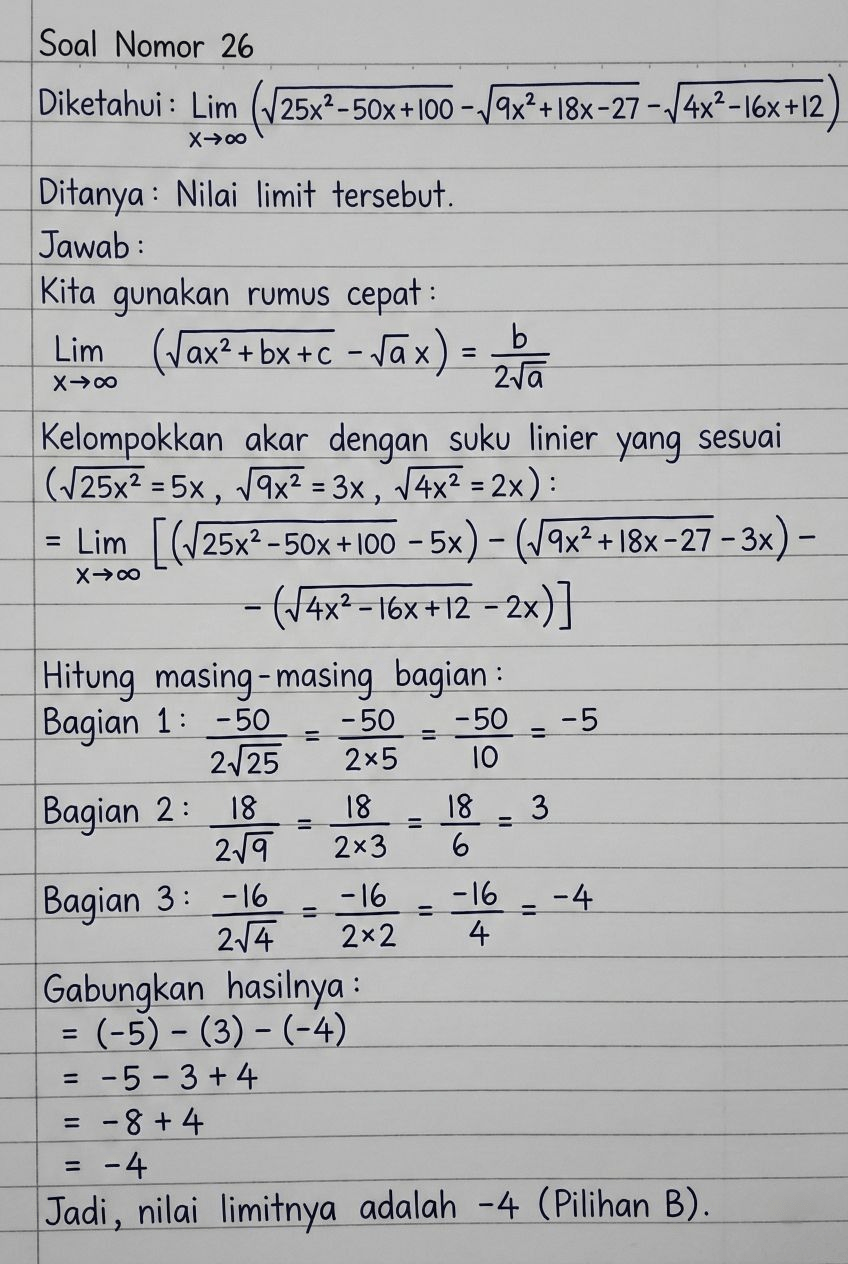 Soal Nomor 26
Diketahui : Lim x→∞ (√(25x²-50x+100) - √(9x²+18x-27) - √(4x²-16x+12))
Ditanya : Nilai limit tersebut.
Jawab :
Kita gunakan rumus cepat :
Lim x→∞ (√(ax²+bx+c) - √a x) = b/(2√a)
Kelompokkan akar dengan suku linier yang sesuai
(√(25x²) = 5x , √(9x²) = 3x , √(4x²) = 2x) :
= Lim x→∞ [(√(25x²-50x+100) - 5x) - (√(9x²+18x-27) - 3x) -
- (√(4x²-16x+12) - 2x)]
Hitung masing-masing bagian :
Bagian 1 : -50/(2√25) = -50/(2×5) = -50/10 = -5
Bagian 2 : 18/(2√9) = 18/(2×3) = 18/6 = 3
Bagian 3 : -16/(2√4) = -16/(2×2) = -16/4 = -4
Gabungkan hasilnya :
= (-5) - (3) - (-4)
= -5 - 3 + 4
= -8 + 4
= -4
Jadi, nilai limitnya adalah -4 (Pilihan B).